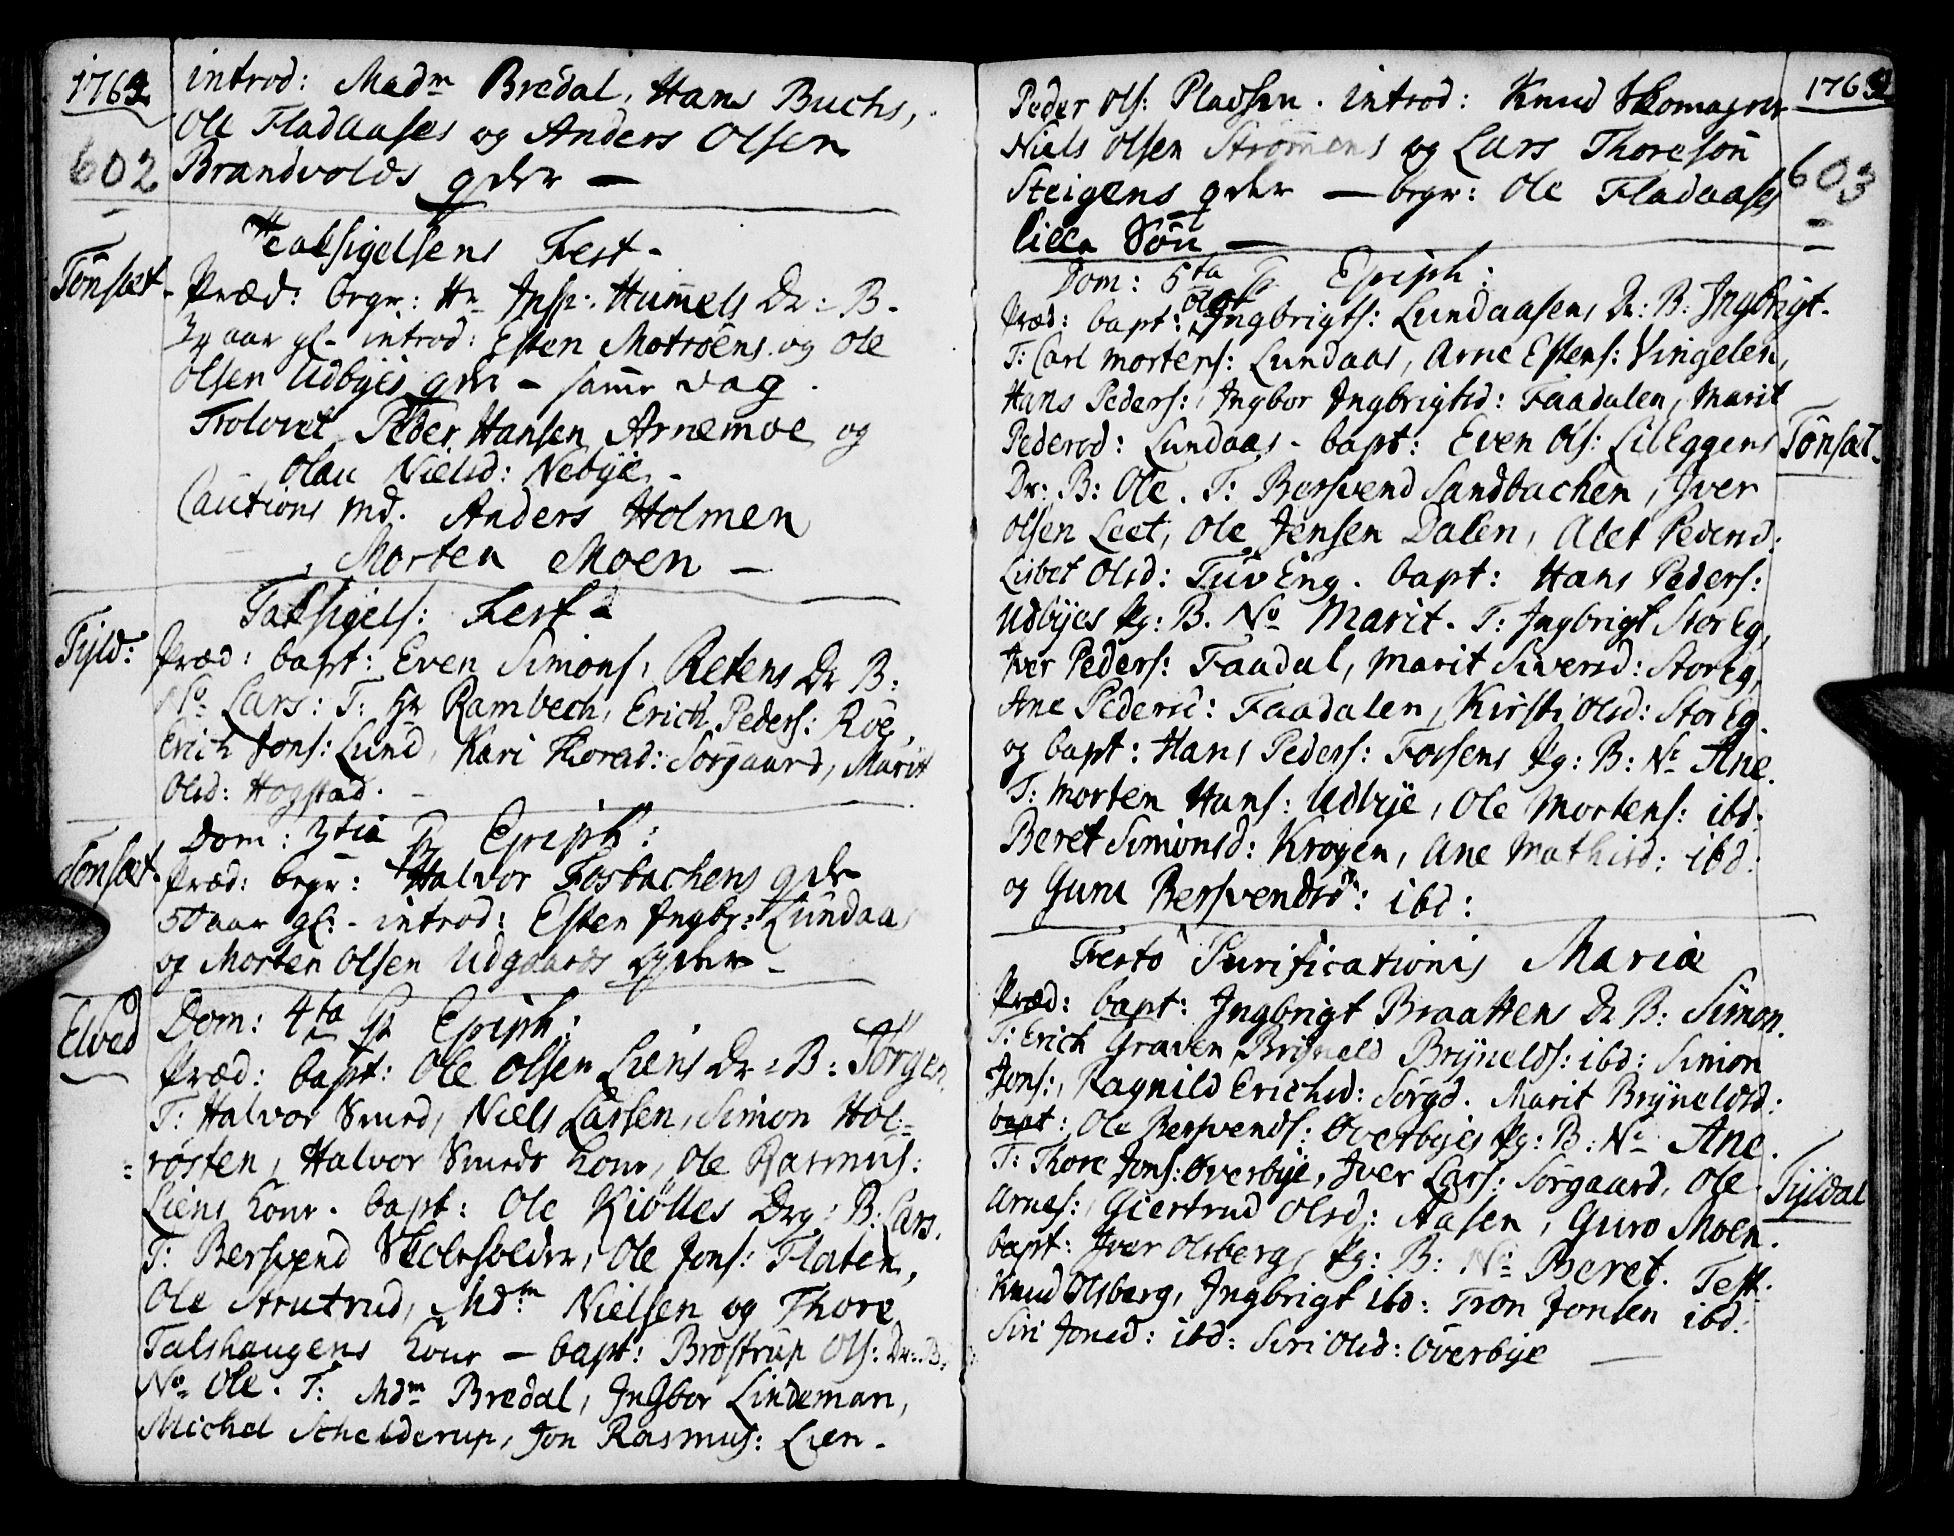 1763
602
introd: Madm Bredal, Hans Buchs,
Ole Fladaases og Anders Olsen
Brandvolds qvder —
Taksigelsens Fest -
Tönset.
Præd: begr: Hr Insp. Hummels Dr: B.
aar gl- introd: Esten Motröens og Ole
Olsen Udbyes qvdr - samme dag.
Trolovet Peder Hansen Arnemoe og
Olau Nielsd: Nebye.
Cautions Md. Anders Holmen
Morten Moen —
Taksigels: Fest -
Tyld:
Præd: bapt: Even Simons: Retens Dr B:
No Lars: T: Hr Rambech, Erich Peders: Röe,
Erich Jons: Lund, Kari Thoresd: Sörgaard, Marit
Olsd: Hogstad.
Dom: 3tia p Epiph:
Tönset.
Præd: begr: Halvor Fosbachens qvdr
50 aar gl: - introd: Esten Ingbr: Lundaas
og Morten Olsen Udgaards qvder -
Elved
Dom: 4ta p Epiph:
Præd: bapt: Ole Olsen Liens Dr: B: Jörgen.
T: Halvor Smed, Niels Larsen, Simon Hol-
rösten, Halvor Smeds Kone, Ole Rasmus:
Liens Kone. bapt: Ole Kiölles Drg: B: Lars.
T: Berswend Skoleholder, Ole Jons: Flaten,
Ole Strutrud, Mdm Nielsen og Thore
Talshaugens Kone — bapt: Broström Ols: Dr: B.
No Ole. T: Mdm Bredal, Ingbor Lindeman,
Michel Schelderup, Jon Rasmus: Lien.
1763
603
Peder Ols: Pladsen. introd: Knud Skomager
Niels Olsen Strömmens og Lars Thoresön
Steigens qvder — begr: Ole Fladaases
lille Sön —
Dom: 5ta p Epiph:
Præd: bapt: Ingbrigts: Lundaasens Dr: B: Ingbrigt.
T: Carl Mortens: Lundaas, Arne Estens: Vingelen,
Hans Peders:, Ingbor Ingbrigtsd: Faadalen, Marit
Pedersd: Lundaas - bapt: Even Ols: LilEggens
Tönset.
Dr: B: Ole. T: Berswend Sandbachen, Iver
Olsen Leet, Ole Jensen Dalen, Alet Pedersd:
Lisbet Olsd: TuvEng. bapt: Hans Peders:
Udbyes Pg: B. No Marit. T: Ingbrigt StorEg,
Iver Peders: Faadal, Marit Siversd: StorEg,
Ane Pedersd: Faadalen, Kirsti Olsd: StorEg.
og bapt: Hans Peders: Fossens Pg: B: No Ane.
T: Morten Hans: Udbye, Ole Mortens: ibd:
Beret Simonsd: Krogen, Ane Mathisd: ibd:
og Guru Berswendsd: ibd:
Festo Purificationis Mariæ
Præd: bapt: Ingbrigt Braattens Dr B: Simon.
T: Erich Graven, Bryneld Brynelds: ibd: Simon
Jons:, Ragnild Erichsd: Sörgd. Marit Bryneldsd:
bapt: Ole Berswends: Överbyes Pg: B: No Ane.
T: Thore Jons: Överbye, Iver Lars: Sörgaard, Ole
Tyldal
Arnes:, Giertrud Olsd: Aasen, Guro Moen.
bapt: Iver Olsberg, Pg: B: No Beret. Test:
Knud Olsberg, Ingbrigt ibd: Tron Jonsen ibd:
Siri Jonsd: ibd: Siri Olsd: Överbye —